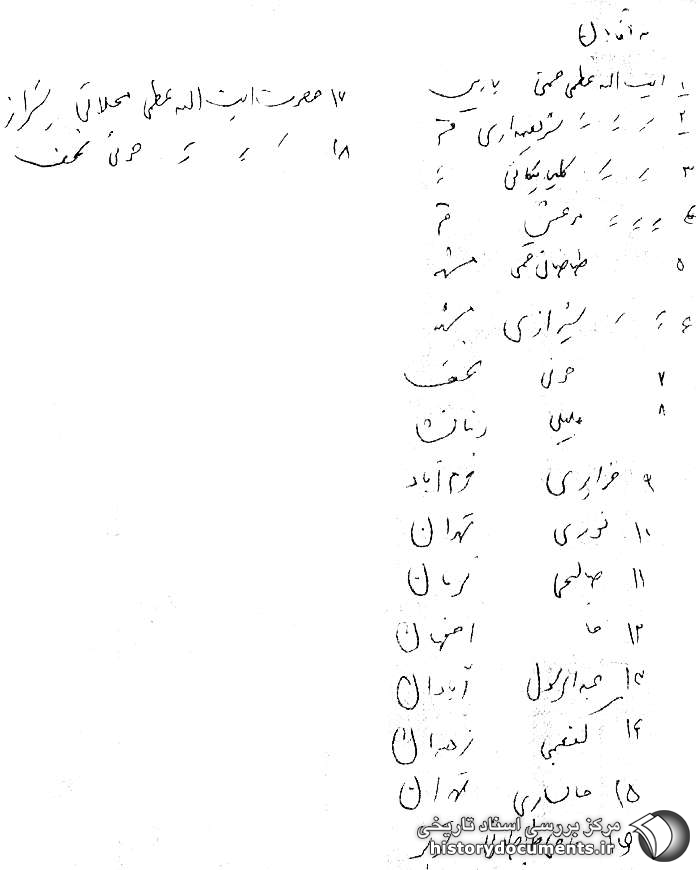 به آقایان
۱ ایت اله عظمی خمینی پاریس
۲ " " " شریعتمداری قم
۳ " " گلپایگانی "
۴ " " " مرعشی قم
۵ طباطبائی قمی مشهد
۶ " " شیرازی مشهد
۷ خوئی نجف
۸ جلیلی کرمانشاه
۹ جزایری خرم آباد
۱۰ نوری تهران
۱۱ صالحی کرمان
۱۲ اصفهان
۱۳ عبدالرسول آبادان
۱۴ کفعمی زاهدان
۱۵ خوانساری تهران
۱۶
۱۷ حضرت ایت اله عظمی محلاتی شیراز
۱۸ " " " خوئی نجف
مرکز بررسی اسناد تاریخی
historydocuments.ir